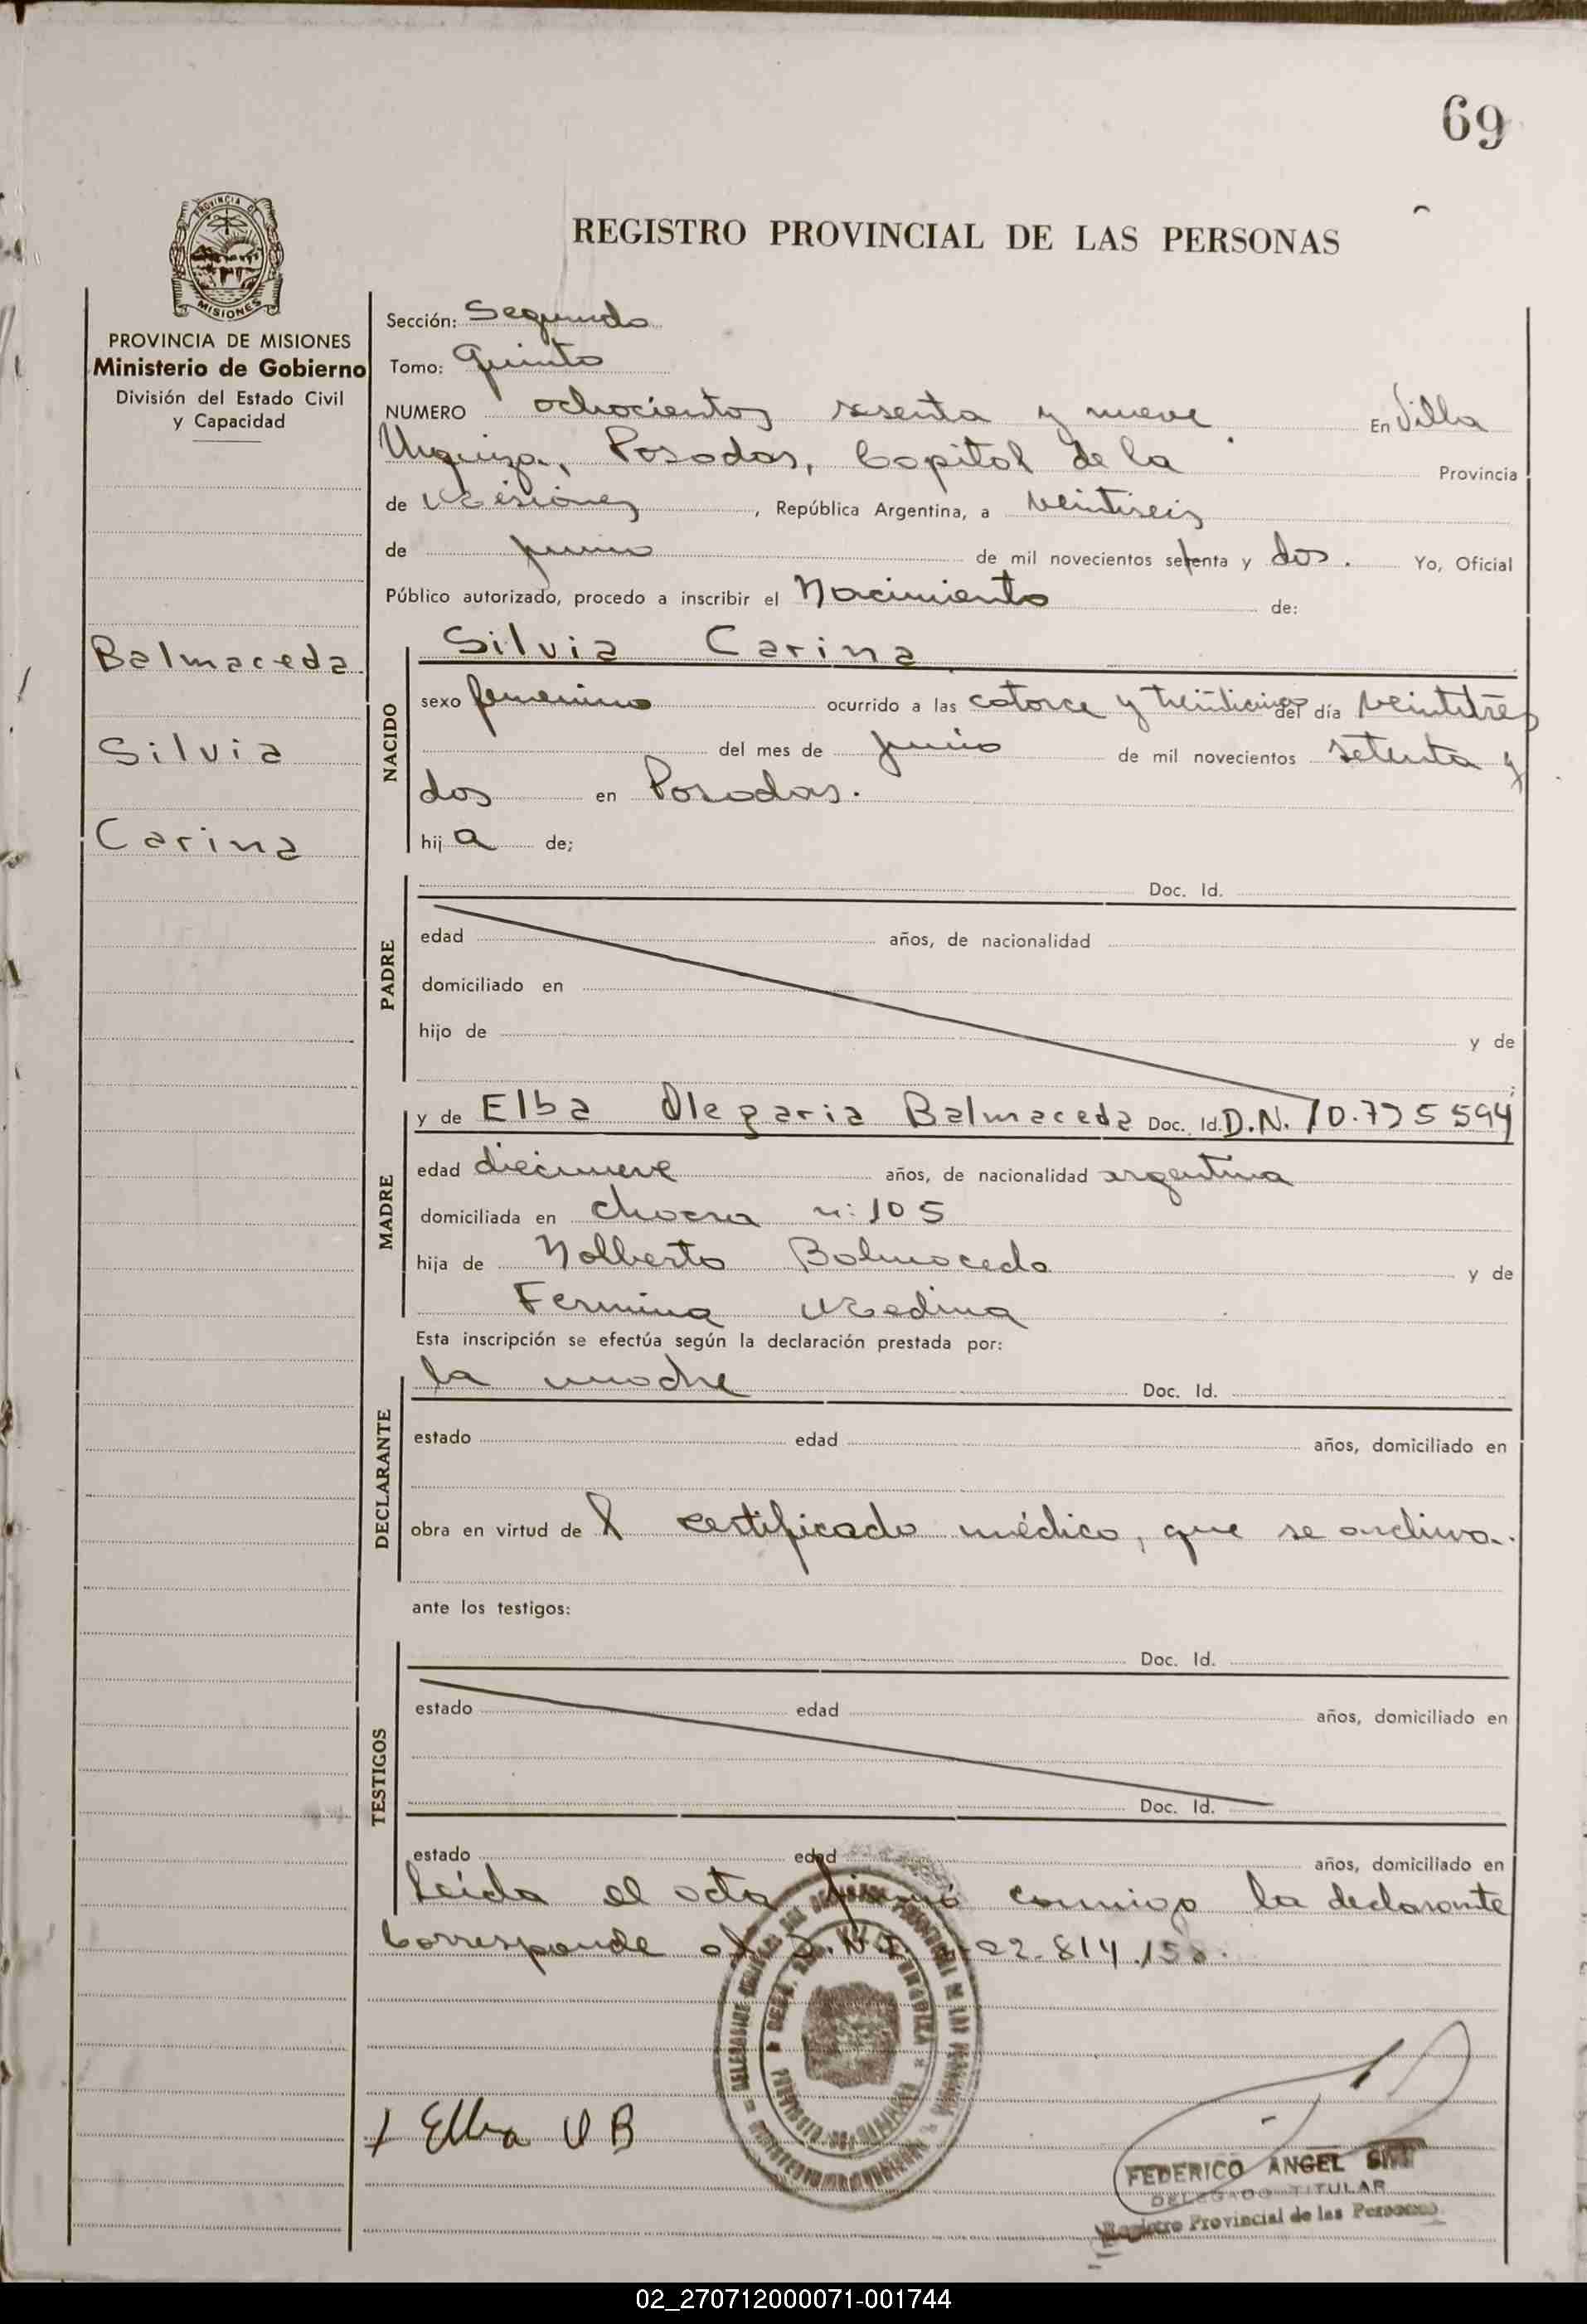 69
REGISTRO PROVINCIAL DE LAS PERSONAS
PROVINCIA DE MISIONES
Ministerio de Gobierno
División del Estado Civil
y Capacidad
Balmaceda
Silvia
Carina
Sección: Segundo
Tomo: Quinto
NUMERO ochocientos sesenta y nueve En Villa
Urquiza, Posadas, Capital de la Provincia
de Misiones, República Argentina, a veintiseis
de junio de mil novecientos setenta y dos. Yo, Oficial
Público autorizado, procedo a inscribir el Nacimiento de:
NACIDO
Silvia Carina
sexo femenino ocurrido a las catorce y treinticinco del día veintitrés
del mes de junio de mil novecientos setenta y
dos en Posadas.
hija de;
PADRE
Doc. Id.
edad años, de nacionalidad
domiciliado en
hijo de y de
MADRE
y de Elba Olegaria Balmaceda Doc. Id. D.N. 10.725594
edad diecinueve años, de nacionalidad argentina
domiciliada en chacra n: 105
hija de Nolberto Balmaceda y de
Fermina Medina
Esta inscripción se efectúa según la declaración prestada por:
DECLARANTE
la madre Doc. Id.
estado edad años, domiciliado en
obra en virtud de l certificado médico, que se archiva.
ante los testigos:
TESTIGOS
Doc. Id.
estado edad años, domiciliado en
Doc. Id.
estado edad años, domiciliado en
Leída el acta firmó conmigo la declarante
Corresponde al D.N.I. 22.814.158.
Elba O B
FEDERICO ANGEL
DELEGADO TITULAR
Registro Provincial de las Personas
02_270712000071-001744